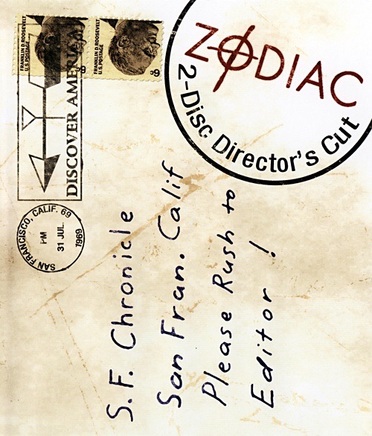 FRANKLIN D. ROOSEVELT
U.S. POSTAGE
6¢
FRANKLIN D. ROOSEVELT
U.S. POSTAGE
6¢
DISCOVER AMERICA
SAN FRANCISCO, CALIF. 69
PM
31 JUL
1969
ZODIAC
2-Disc Director's Cut
S.F. Chronicle
San Fran. Calif
Please Rush to
Editor!